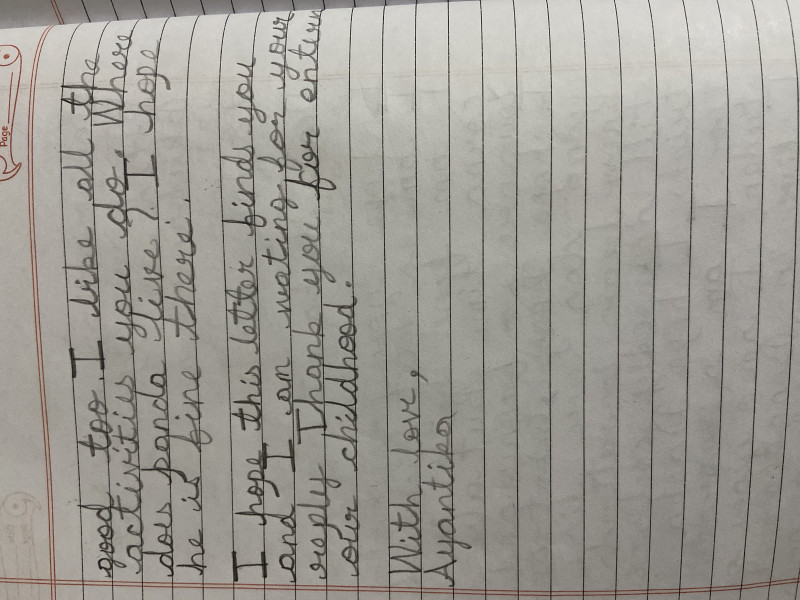 Page
good too. I like all the
activities you do. Where
does panda live? I hope
he is fine there.
I hope this letter finds you
and I am wating for your
reply Thank you for
our childhood.
With love,
Ayantika